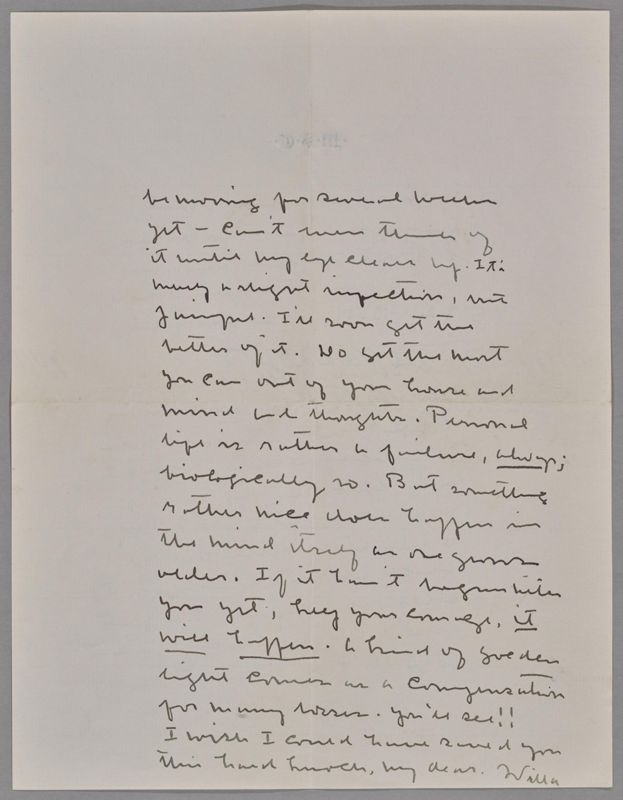 be moving for several weeks
yet – Can't even think of
it until my eye clears up. It's
merely a slight infection, not
painful. I'll soon get the
better of it. Do get the most
you can out of your house and
mind and thoughts. Personal
life is rather a failure, always;
biologically so. But something
rather nice does happen in
the mind itself as one grows
older. If it hasn't begun with
you yet, keep your courage, it
will happen. A kind of golden
light comes as a compensation
for many losses. You'll see!!
I wish I could have saved you
this hard knock, my dear. Willa